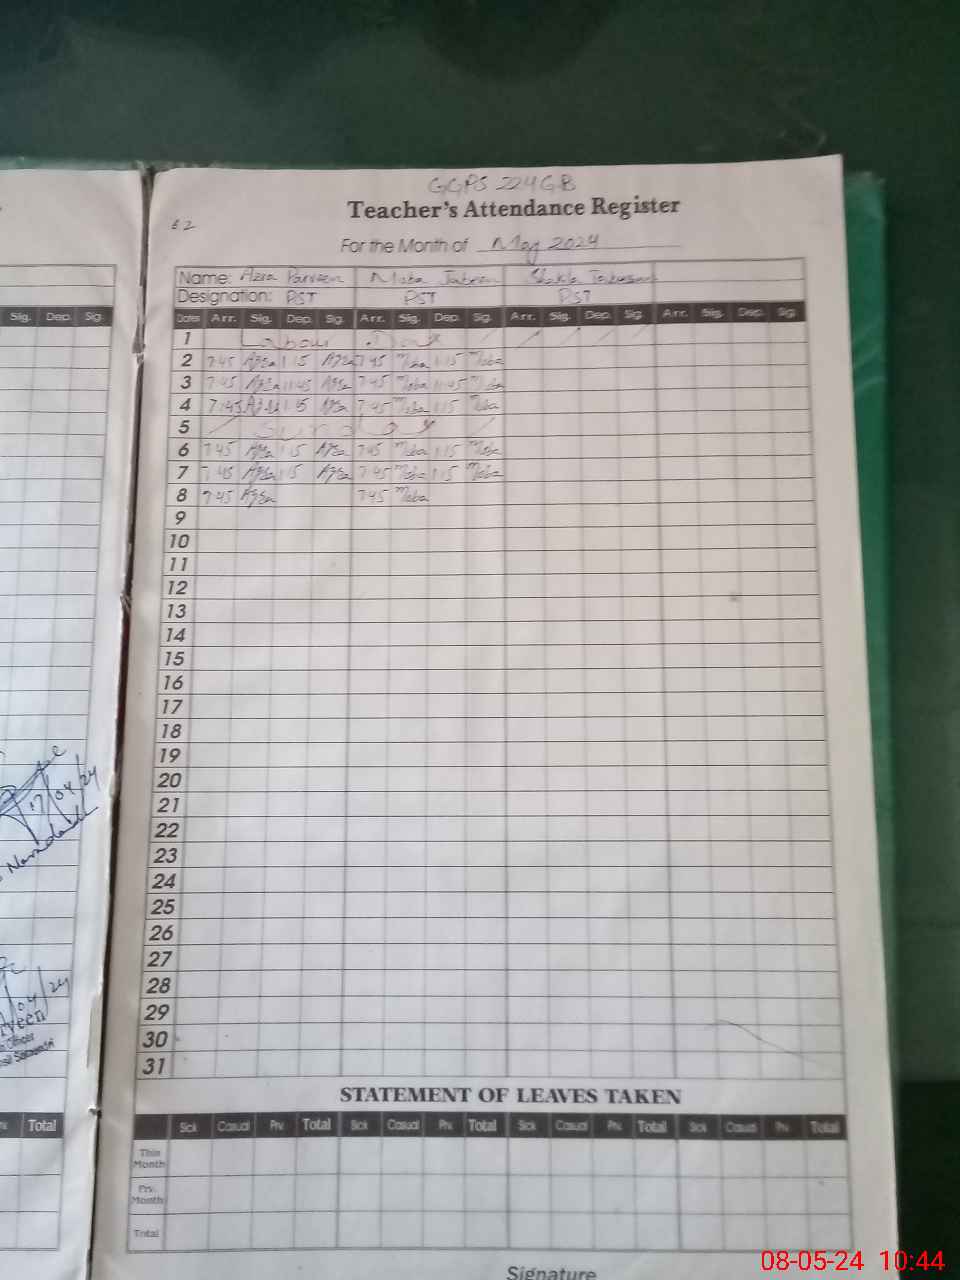 GGPS 224GB
Teacher's Attendance Register
62
For the Month of May 2024
Name: Azra Parveen Moba
Designation: PST PST PST
Sig. Dep. Sig. Dates Arr. Sig. Dep. Sig. Arr. Sig. Dep. Sig. Arr. Sig. Dep. Sig. Arr. Sig. Dep. Sig.
1 Labour Day
2 7:45 Azra 1:15 Azra 7:45 Moba 1:15 Moba
3 7:45 Azra 11:45 Azra 7:45 Moba 11:45 Moba
4 7:45 Azra 1:15 Azra 7:45 Moba 1:15 Moba
5 Sunday
6 7:45 Azra 1:15 Azra 7:45 Moba 1:15 Moba
7 7:45 Azra 1:15 Azra 7:45 Moba 1:15 Moba
8 7:45 Azra 7:45 Moba
9
10
11
12
13
14
15
16
17
18
19
20
21
22
23
24
25
26
27
28
29
30
31
17/04/24
04/24
Officer
STATEMENT OF LEAVES TAKEN
Total Sick Casual Prv. Total Sick Casual Prv. Total Sick Casual Prv. Total Sick Casual Prv. Total
This Month
Prv. Month
Total
Signature
08-05-24 10:44